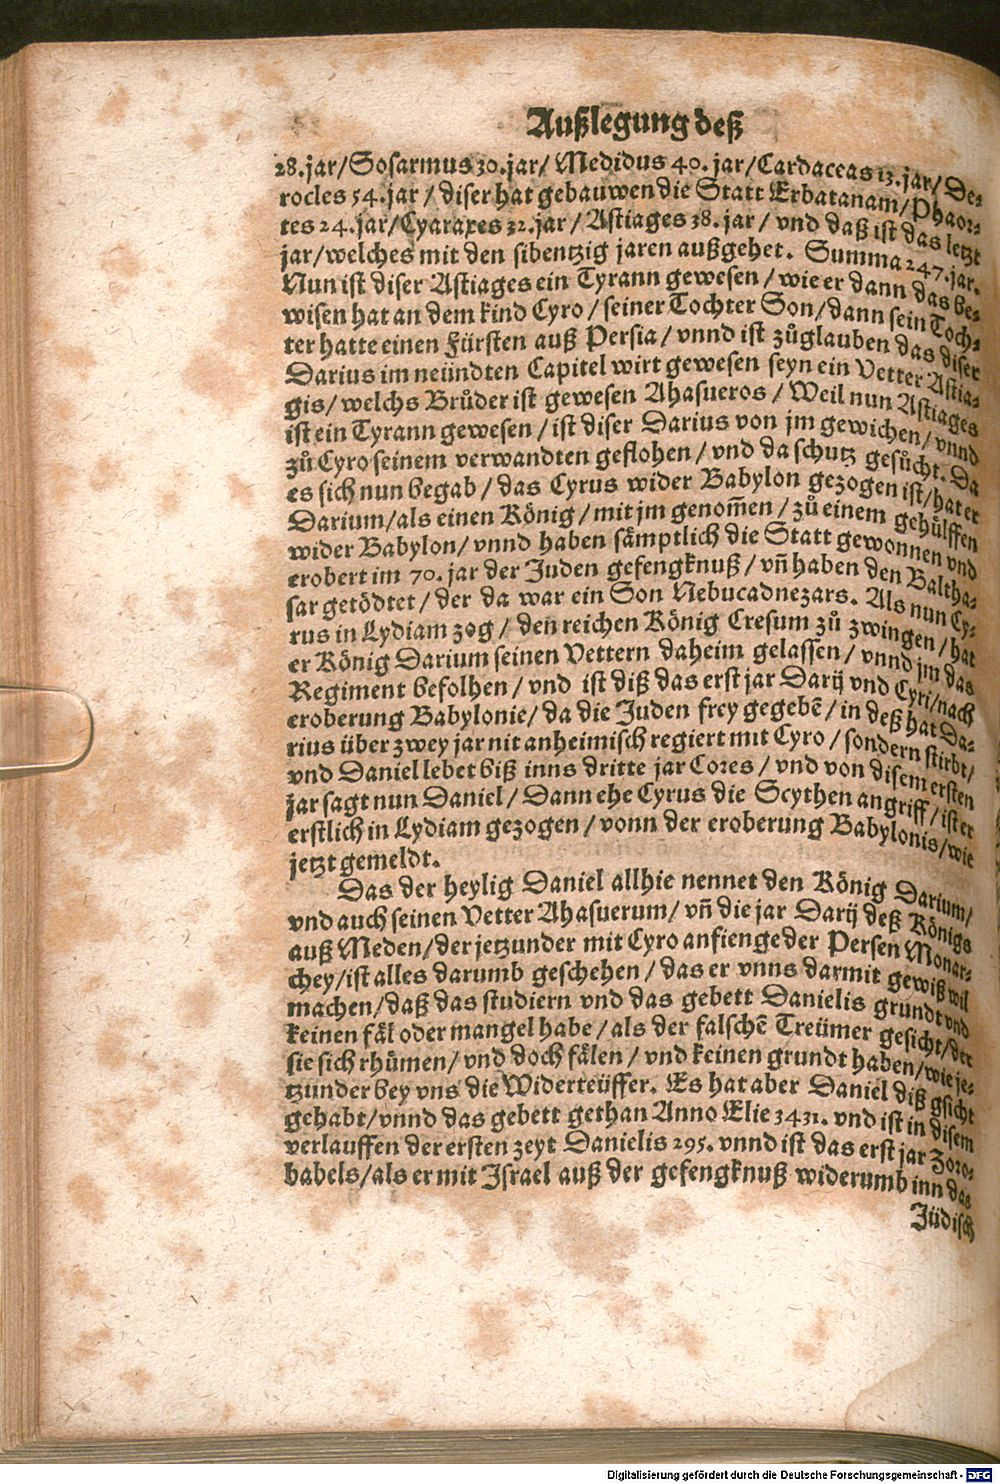 Außlegung deß
28.jar/Sosarmus 30.jar/ Medidus 40.jar/Cardaccas 13.jar/De-
rocles 54.jar / diser hat gebauwen die Statt Erbatanam/Phaor-
tes 24.jar/Cyaraxes 32.jar / Astiages 38.jar / vnd daß ist das letzt
jar/welches mit den sibentzig jaren außgehet. Summa 247.jar.
Nun ist diser Astiages ein Tyrann gewesen / wie er dann das be-
wisen hat an dem kind Cyro / seiner Tochter Son/dann sein Toch-
ter hatte einen Fürsten auß Persia / vnnd ist zůglauben das diser
Darius im neündten Capitel wirt gewesen seyn ein Vetter Astia-
gis/ welchs Brůder ist gewesen Ahasueros / Weil nun Astiages
ist ein Tyrann gewesen / ist diser Darius von jm gewichen/vnnd
zů Cyro seinem verwandten geflohen / vnd da schutz gesůcht. Da
es sich nun begab / das Cyrus wider Babylon gezogen ist/hat er
Darium/als einen König / mit jm genom̄en / zů einem gehülffen
wider Babylon/ vnnd haben sämptlich die Statt gewonnen vnd
erobert im 70.jar der Juden gefengknuß / vn̄ haben den Baltha-
sar getödtet / der da war ein Son Nebucadnezars. Als nun Cy-
rus in Lydiam zog / den reichen König Cresum zů zwingen / hat
er König Darium seinen Vettern daheim gelassen / vnnd jm das
Regiment befolhen / vnd ist diß das erst jar Darij vnd Cyri/nach
eroberung Babylonie/ da die Juden frey gegebē / in deß hat Da-
rius über zwey jar nit anheimisch regiert mit Cyro / sondern stirbt/
vnd Daniel lebet biß inns dritte jar Cores / vnd von disem ersten
jar sagt nun Daniel / Dann ehe Cyrus die Scythen angriff / ist er
erstlich in Lydiam gezogen / vonn der eroberung Babylonis/wie
jetzt gemeldt.
Das der heylig Daniel allhie nennet den König Darium/
vnd auch seinen Vetter Ahasuerum/ vn̄ die jar Darij deß Königs
auß Meden/der jetzunder mit Cyro anfienge der Persen Monar-
chey/ist alles darumb geschehen / das er vnns darmit gewiß wil
machen/daß das studiern vnd das gebett Danielis grundt vnd
keinen fäl oder mangel habe / als der falschē Treümer gesicht/der
sie sich rhůmen/ vnd doch fälen / vnd keinen grundt haben/wie je-
tzunder bey vns die Widerteüffer. Es hat aber Daniel diß gsicht
gehabt/vnnd das gebett gethan Anno Elie 3431. vnd ist in disem
verlauffen der ersten zeyt Danielis 295. vnnd ist das erst jar Zoro-
babels/als er mit Israel auß der gefengknuß widerumb inn das
Jüdisch
Digitalisierung gefördert durch die Deutsche Forschungsgemeinschaft - DFG